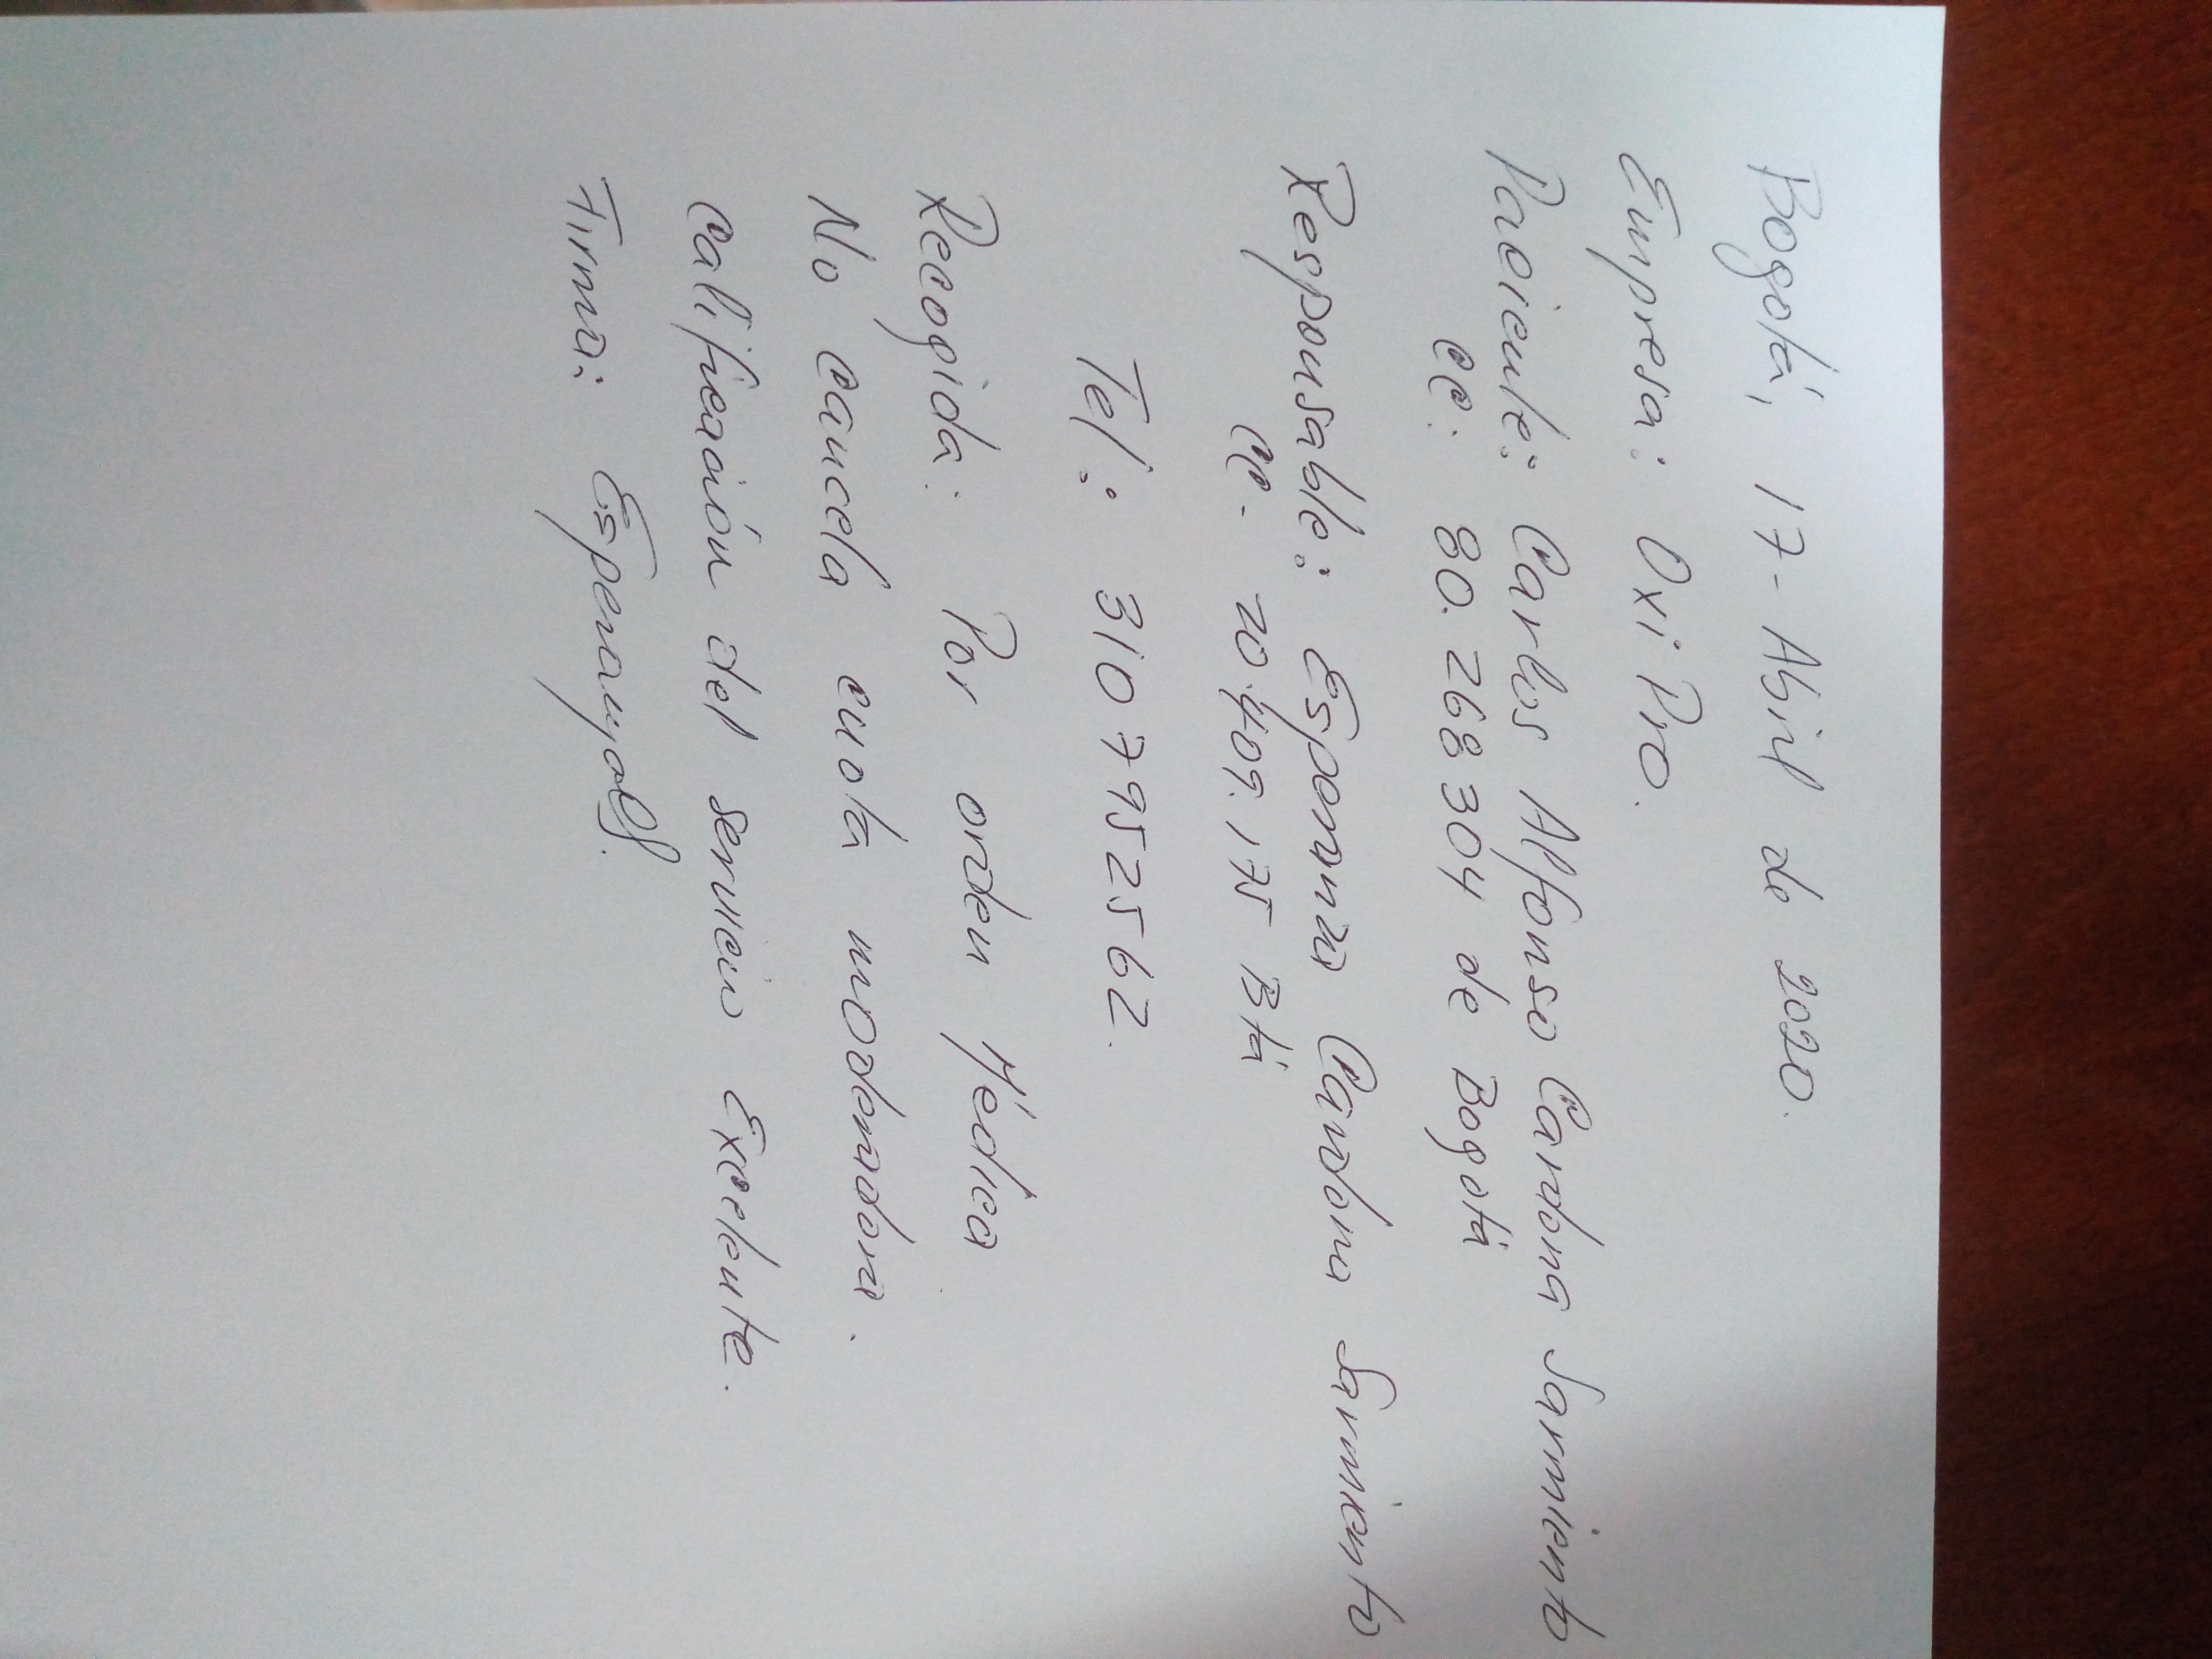 Bogotá, 17 - Abril de 2020.
Empresa: Oxi Pro.
Paciente: Carlos Alfonso Cardona Sarmiento
CC: 80.268304 de Bogotá
Responsable: Esperanza Cardona Sarmiento
CC- 20.409.175 Btá
Tel: 3107952562.
Recogida: Por orden Médica
No cancela cuota moderadora.
Calificación del servicio Excelente.
Firma: